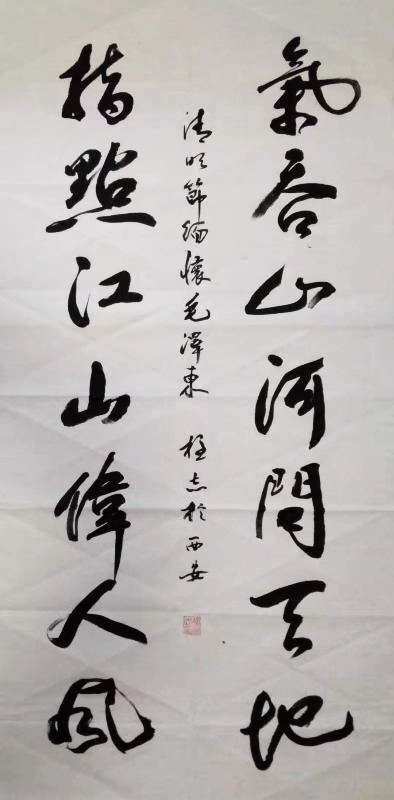 氣吞山河開天地
清明節緬懷毛澤東 志於西安
指點江山偉人風